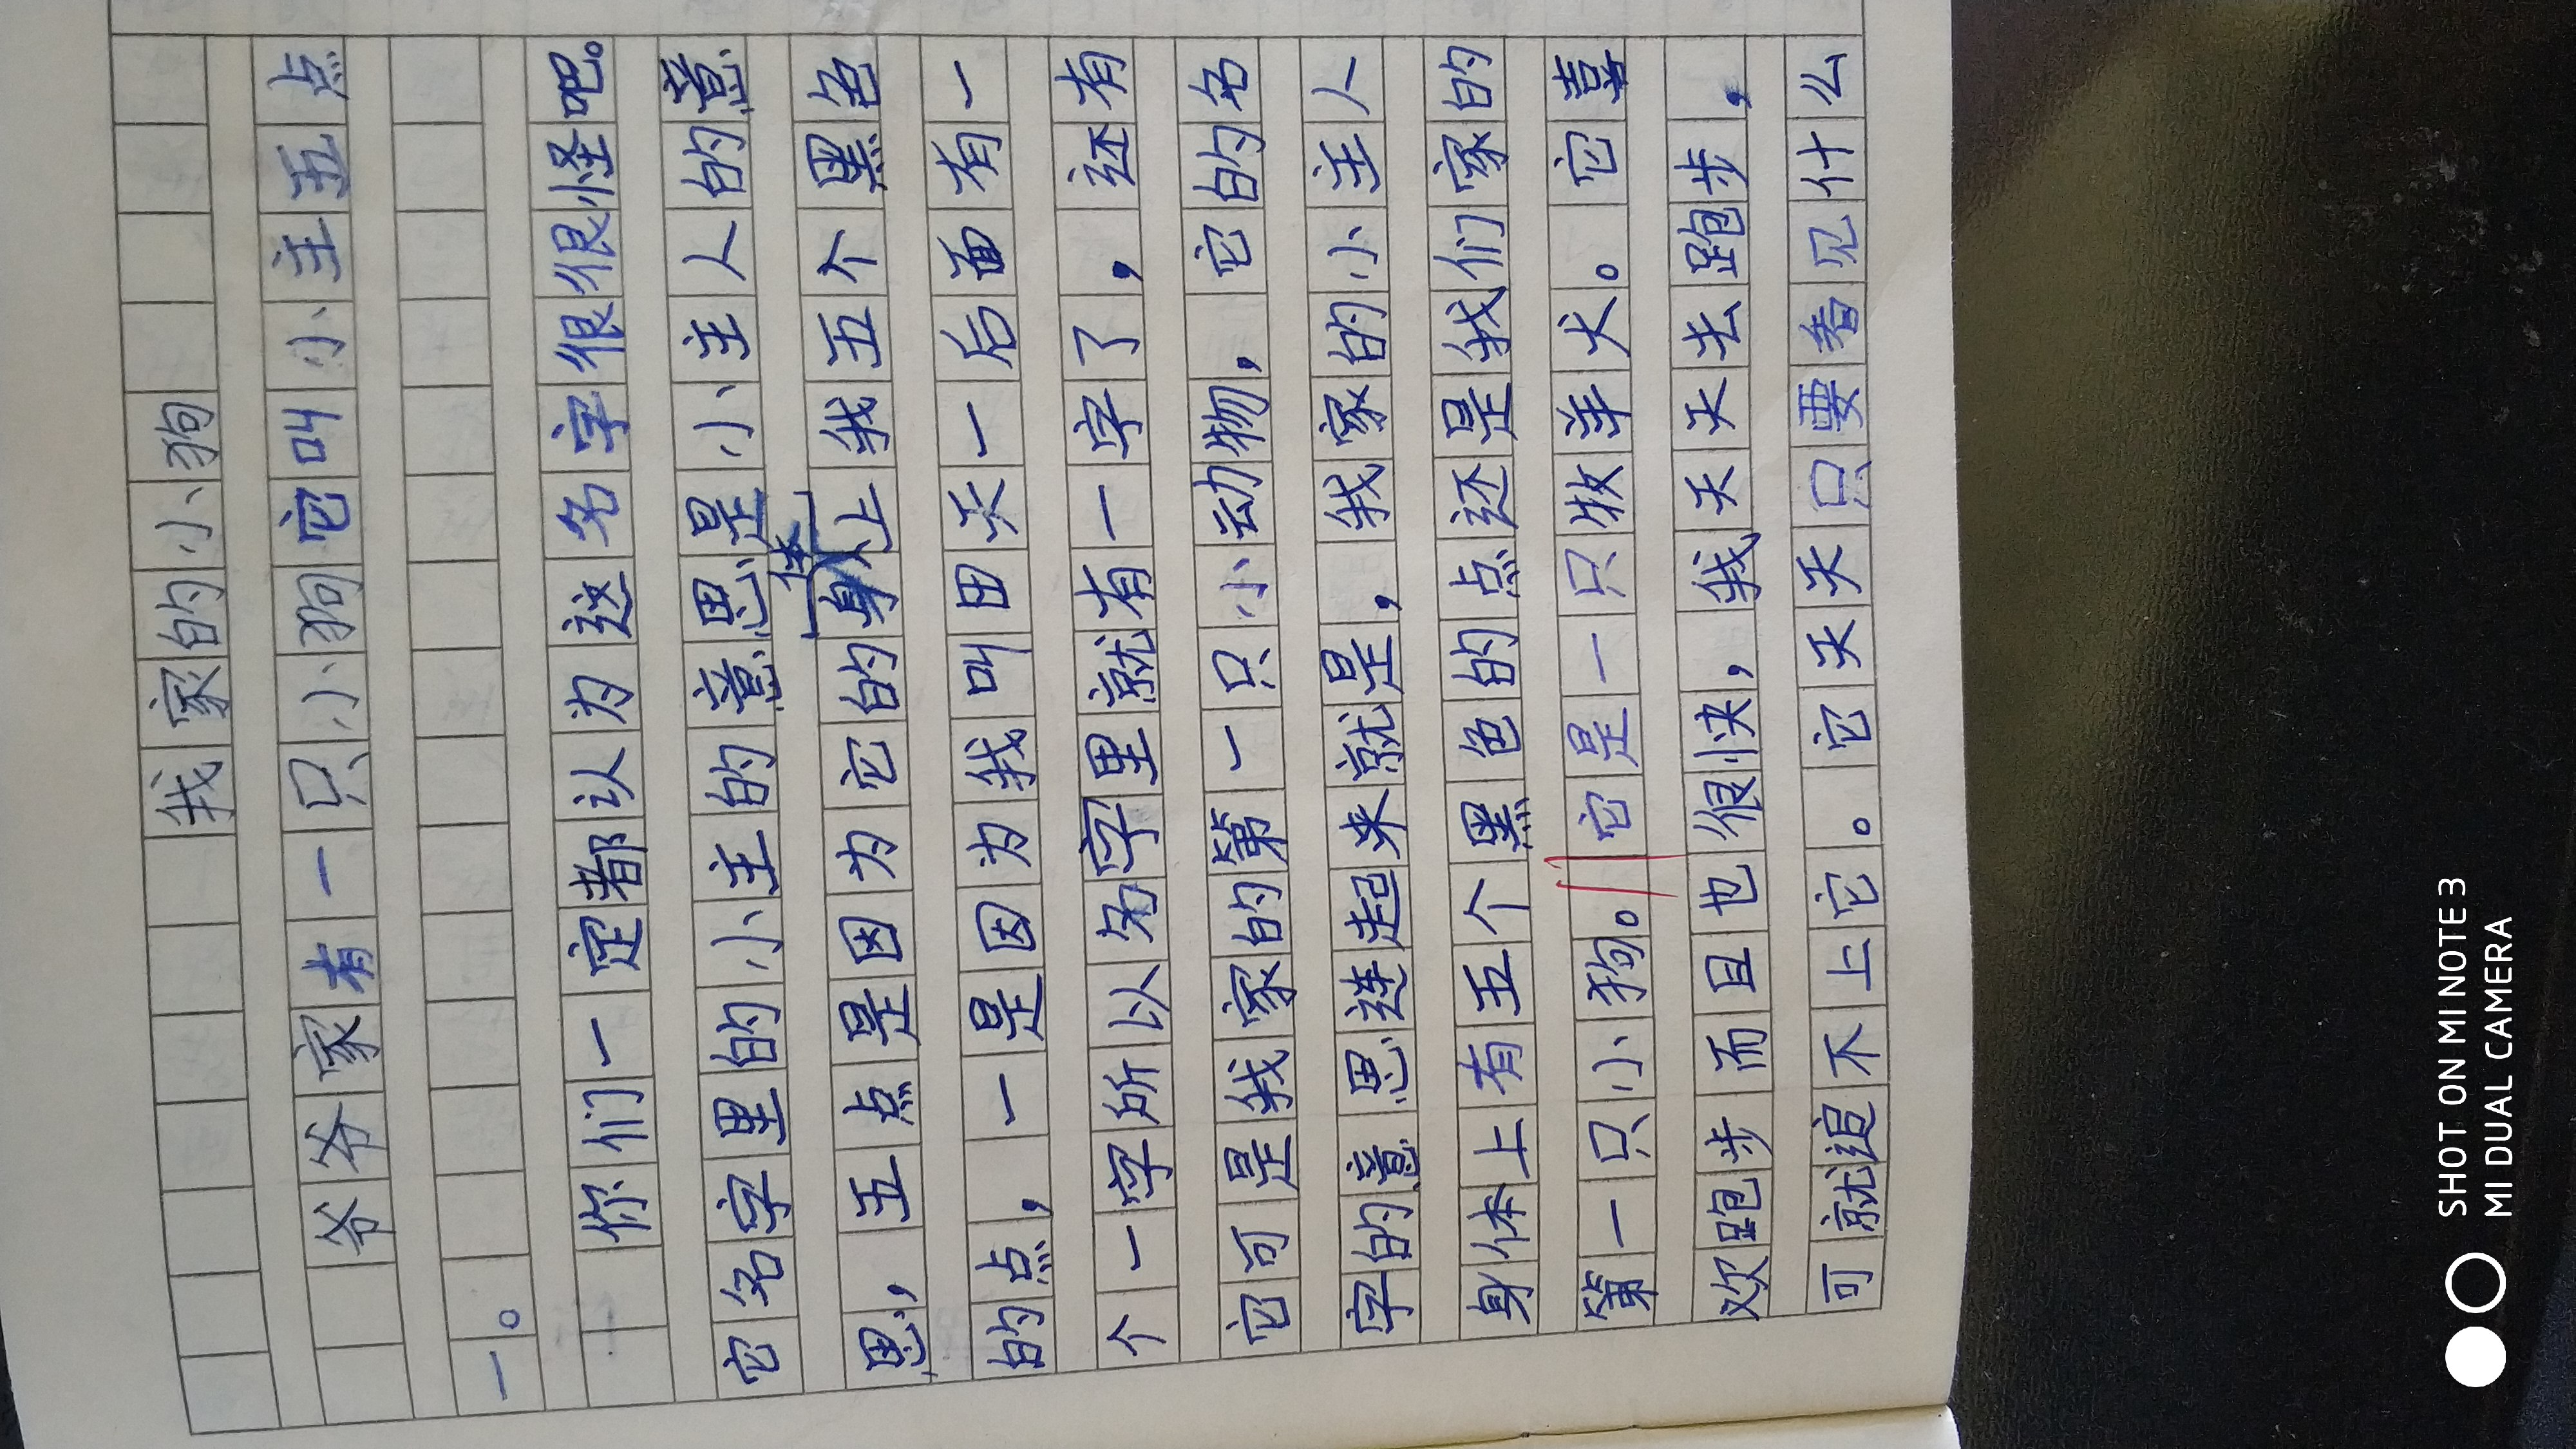 我家的小狗
爷爷家有一只小狗它叫小主五点
一。
你们一定都认为这名字很很怪吧。
它名字里的小主的意思是小主人的意
思，五点是因为它的身体上我五个黑色
的点，一是因为我叫田天一后面有一
个一字所以名字里就有一字了，还有
它可是我家的第一只小动物，它的名
字的意思连起来就是，我家的小主人
身体上有五个黑色的点还是我们家的
第一只小狗。它是一只牧羊犬。它喜
欢跑步而且也很快，我天天去跑步，
可就追不上它。它天天只要看见什么
SHOT ON MI NOTE 3
MI DUAL CAMERA